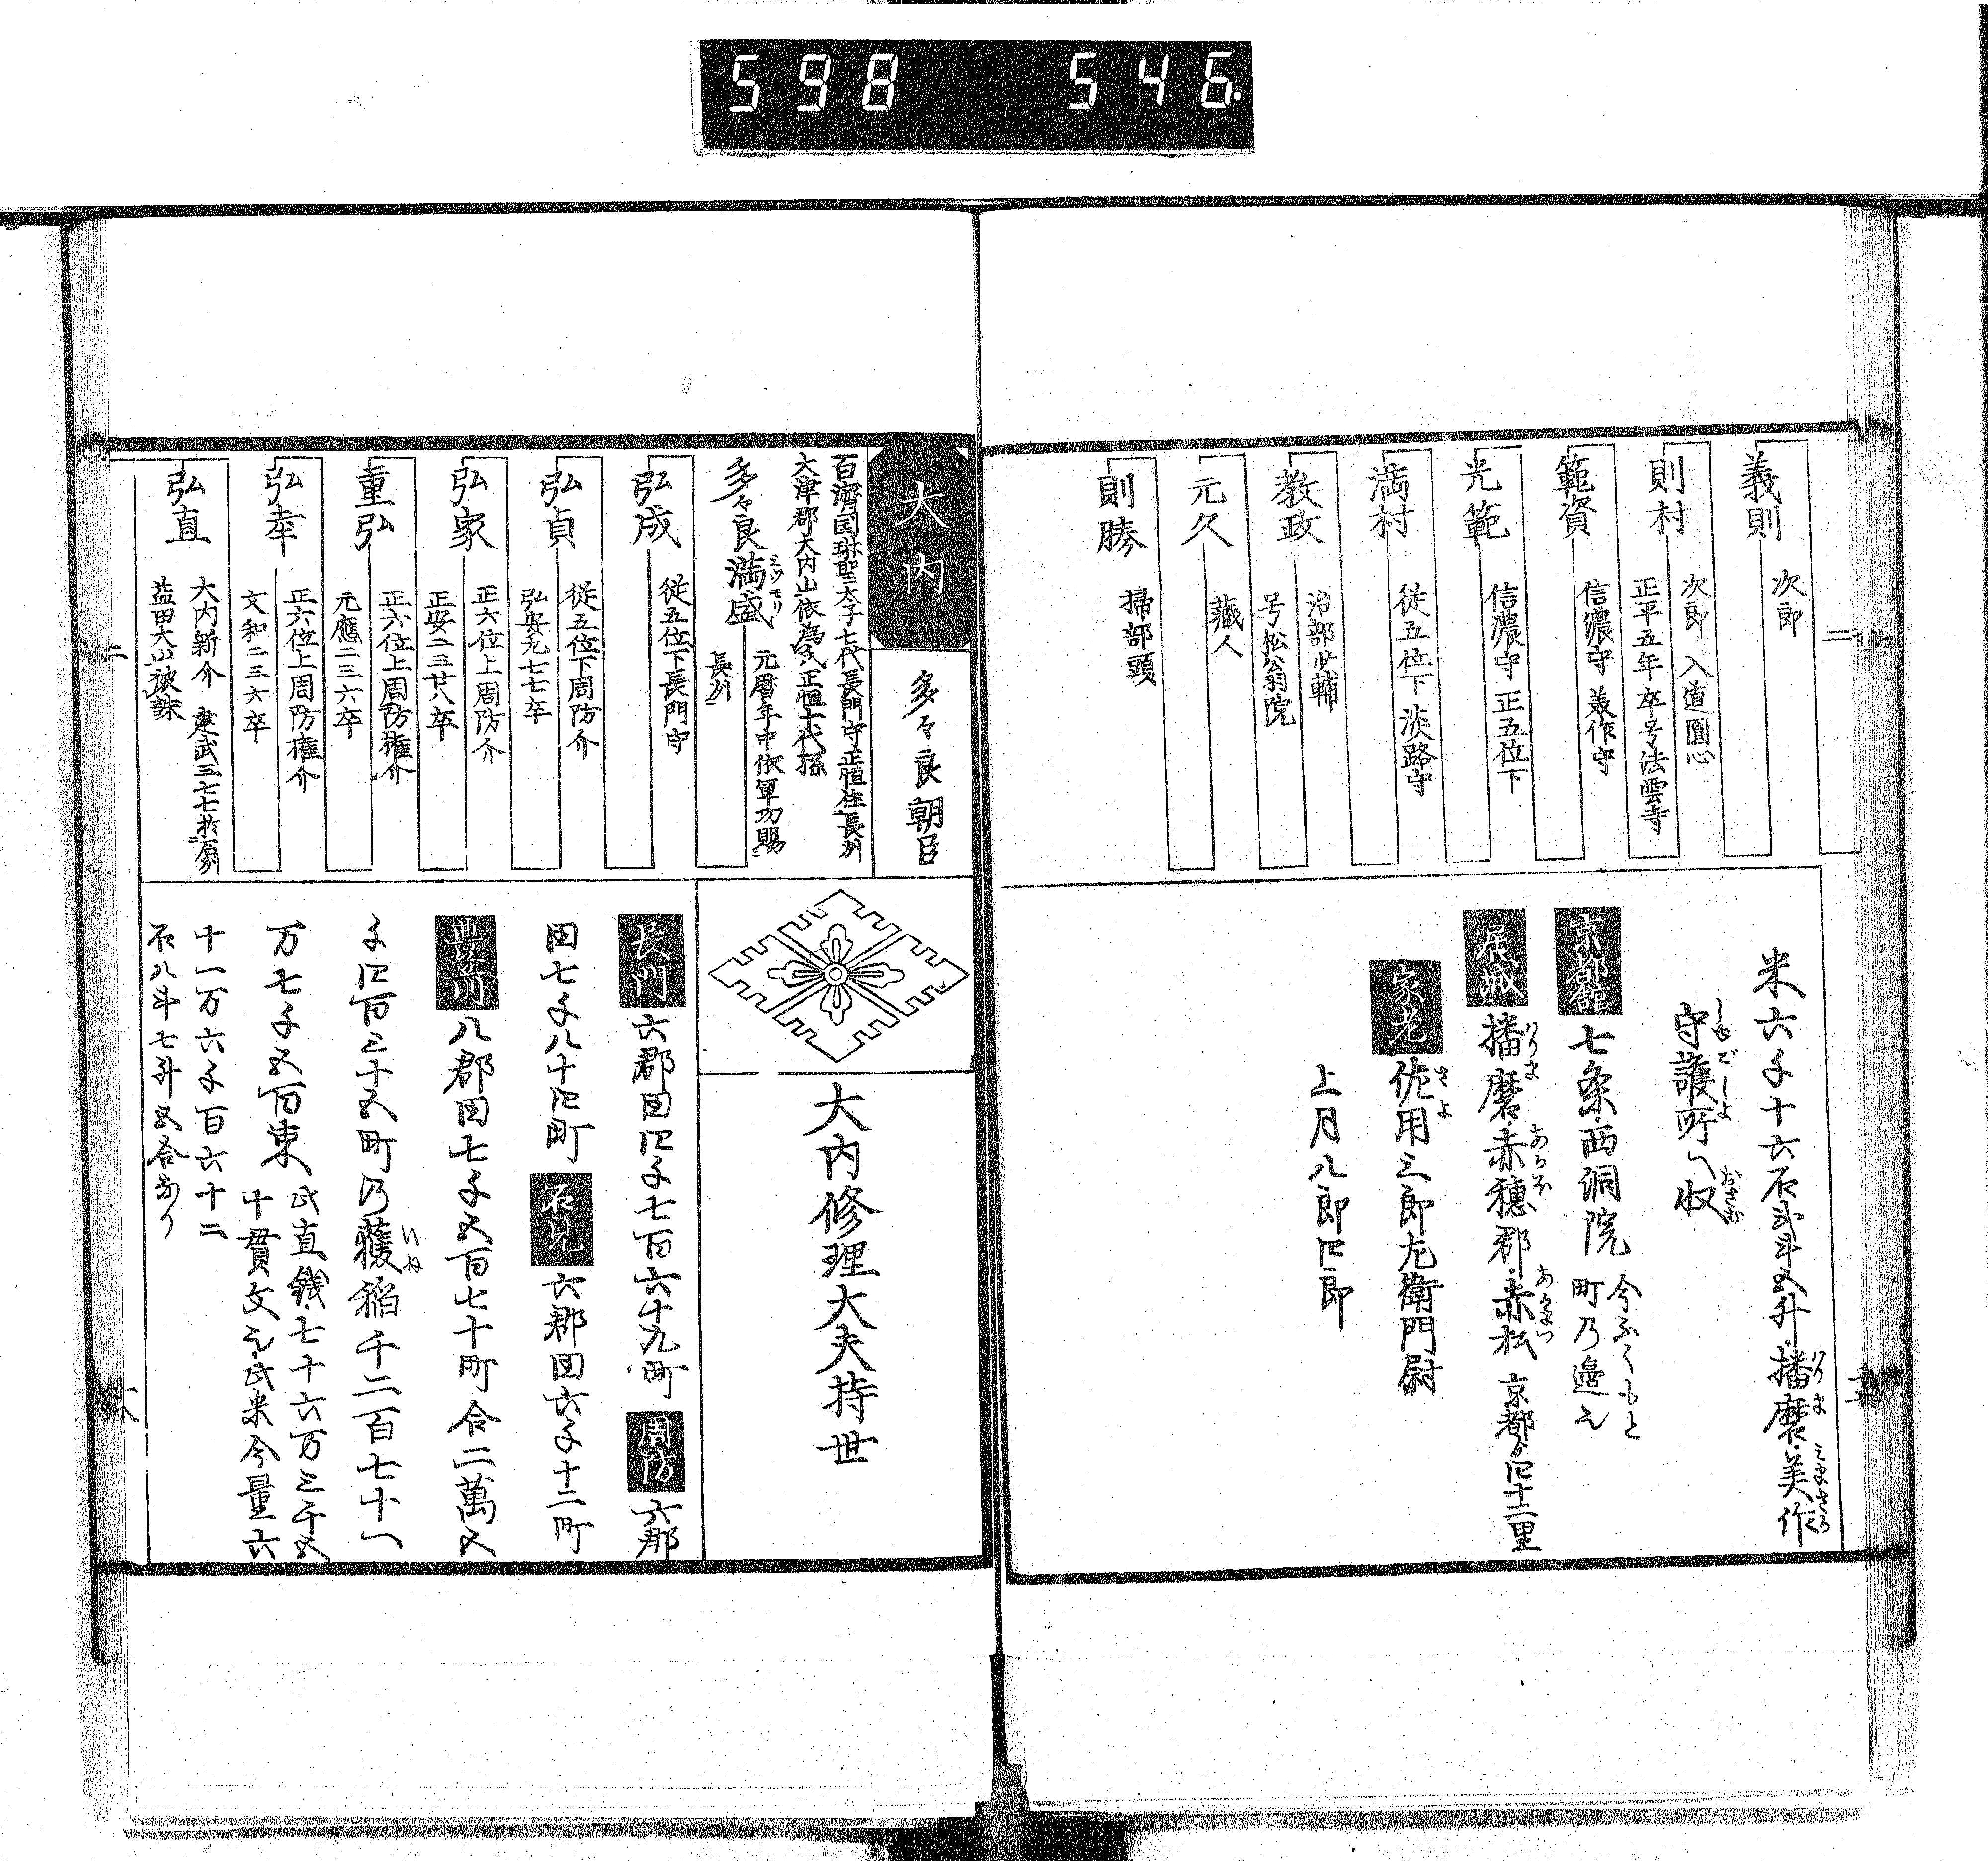 598 546.
義則 次郎
則村 次郎 入道圓心
正平五年卒号法雲寺
範資 信濃守 美作守
光範 信濃守 正五位下
満村 従五位下 淡路守
教政 治部少輔
号松公翁院
元久 蔵人
則勝 掃部頭
米六千十六石斗斗五升・播磨・美作
守護所へ収
京都館 七条・西洞院 今ふくもと
町乃邉也
居城 播磨・赤穂郡・赤松 京都ゟ四十二里
家老 佐用三郎左衛門尉
上月八郎四郎
大内 多々良朝臣
百濟国琳聖太子七代長門守正恒住長州
大津郡大内山依為氏正恒十代孫
多々良満盛 元暦年中依軍功賜
ミツモリ
長州
弘成 従五位下長門守
弘貞 従五位下周防介
弘安九七七卒
弘家 正六位上周防介
正安二三廿八卒
重弘 正六位上周防権介
元應二三六卒
弘幸 正六位上周防権介
文和二三六卒
弘直 大内新介 建武三七七於石州
益田大山被誅
大内修理大夫持世
長門 六郡田四千七百六十九町 周防 六郡
田七千八十四町 石見 六郡田六千十二町
豊前 八郡田七千五百七十町合二萬五
千四百三十五町乃獲稲千二百七十一
万七千五百束 此直銭・七十六万三千五
十貫文也・此米今量六
十一万六千百六十二
石八斗七升五合あり